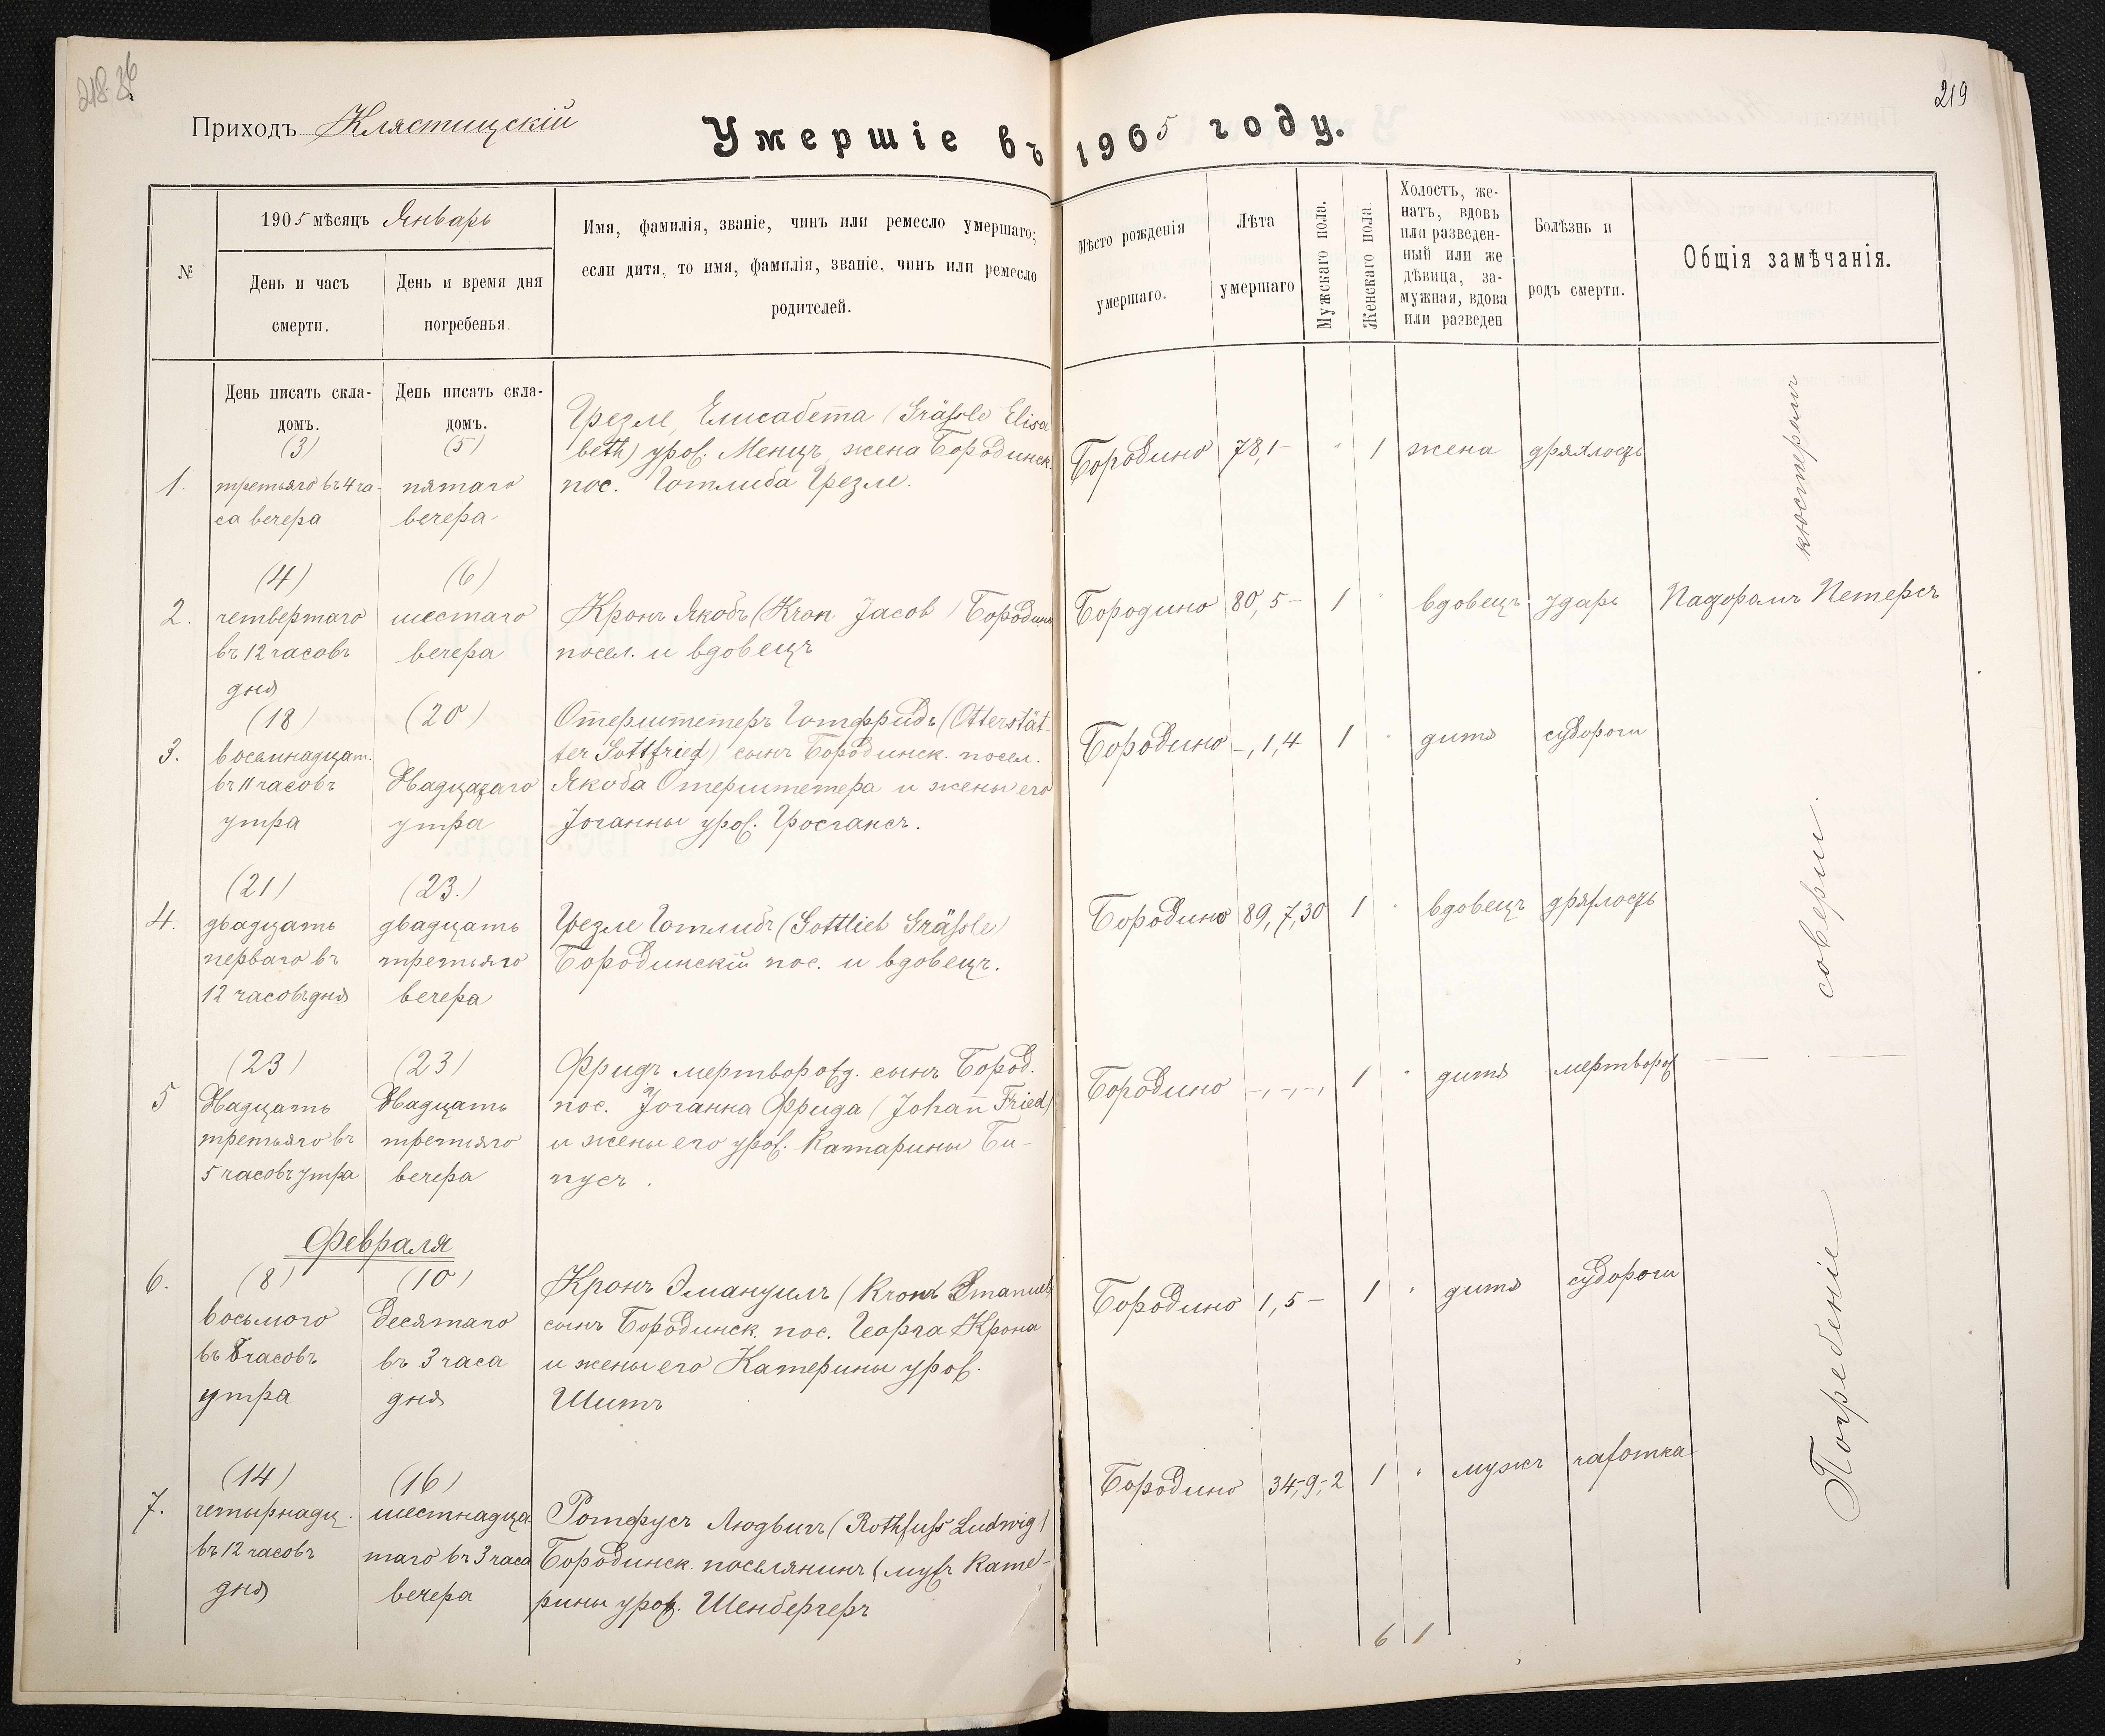 218
36
219
Приходъ Клястицскій
Умершіе въ 1905 году.
№
1905 мѣсяцъ Январь
День и часъ
смерти.
День и время дня
погребенья.
Имя, фамилія, званіе, чинъ или ремесло умершаго;
если дитя, то имя, фамилія, званіе, чинъ или ремесло
родителей.
Мѣсто рожденія
умершаго.
Лѣта
умершаго
Мужскаго пола.
Женскаго пола
Холостъ, же-
натъ, вдовъ
или разведен-
ный или же
дѣвица, за-
мужная, вдова
или разведен
Болѣзнь и
родъ смерти.
Общія замѣчанія.
День писать скла-
домъ.
День писать скла-
домъ.
1.
(3)
третьяго въ 4 ча-
са вечера
(5)
пятаго
вечера
Грезле, Елисабета (Gräßle Elisa
beth) урож. Менцъ, жена Бородинск.
пос. Готлиба Грезле.
Бородино 78,1- " 1 жена дряхлость
2.
(4)
четвертаго
въ 12 часовъ
дня
(6)
шестаго
вечера
Кронъ Якобъ (Kron Jacob) Бородино
посел. и вдовецъ
Бородино 80,5- 1 " вдовецъ ударъ
3.
(18)
восьмнадцат.
въ 11 часовъ
утра
(20)
двадцатаго
утра
Отерштетеръ Готфридъ (Otterstät-
ter Gottfried) сынъ Бородинск. посел.
Якоба Отерштетера и жены его
Іоганны урож. Гросгансъ.
Бородино -,1,4 1 " дитя судороги
4.
(21)
двадцать
перваго въ
12 часовъ дня
(23.)
двадцать
третьяго
вечера
Грезле Готлибъ (Gottlieb Gräßle)
Бородинскій пос. и вдовецъ.
Бородино 89,7,30 1 " вдовецъ дряхлость
5
(23)
двадцать
третьяго въ
5 часовъ утра
(23)
двадцать
третьяго
вечера
Фридъ мертворожд. сынъ Бород.
пос. Іоганна Фрида (Johann Fried)
и жены его урож. Катарины Би-
пусъ.
Бородино -,-,-, 1 " дитя мертворож
Февраля
6.
(8)
восьмого
въ 8 часовъ
утра
(10)
десятаго
въ 3 часа
дня
Кронъ Эмануилъ (Kron Emanuel)
сынъ Бородинск. пос. Георга Крона
и жены его Катерины урож.
Шитъ
Бородино 1,5- 1 " дитя судороги
7.
(14)
четырнадц.
въ 12 часовъ
дня
(16)
шестнадца-
таго въ 3 часа
вечера
Ротфусъ Людвигъ (Rothfuß Ludwig)
Бородинск. поселянинъ (мужъ Кате-
рины урож. Шенбергеръ
Бородино 34,-9,-2 1 " мужъ чахотка
6 1
Погребеніе совершилъ
Пасторомъ Петерсъ
кюстеромъ